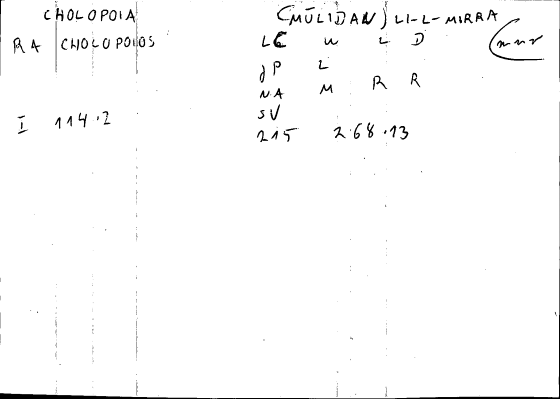 CHOLOPOIA
(MŪLIDAN) LI-L-MIRRA
RA CHOLOPOIOS
LC W L D
gP L
NA M R R
SV
I 114.2
215 268.13